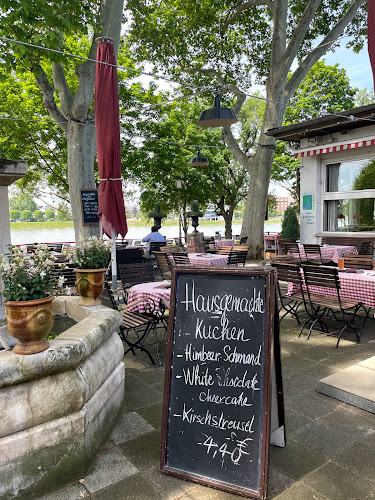 Hausgemachte
Kuchen
- Himbeer-Schmand
- White Chocolate
cheercake
- Kirschstreusel
4,40 €